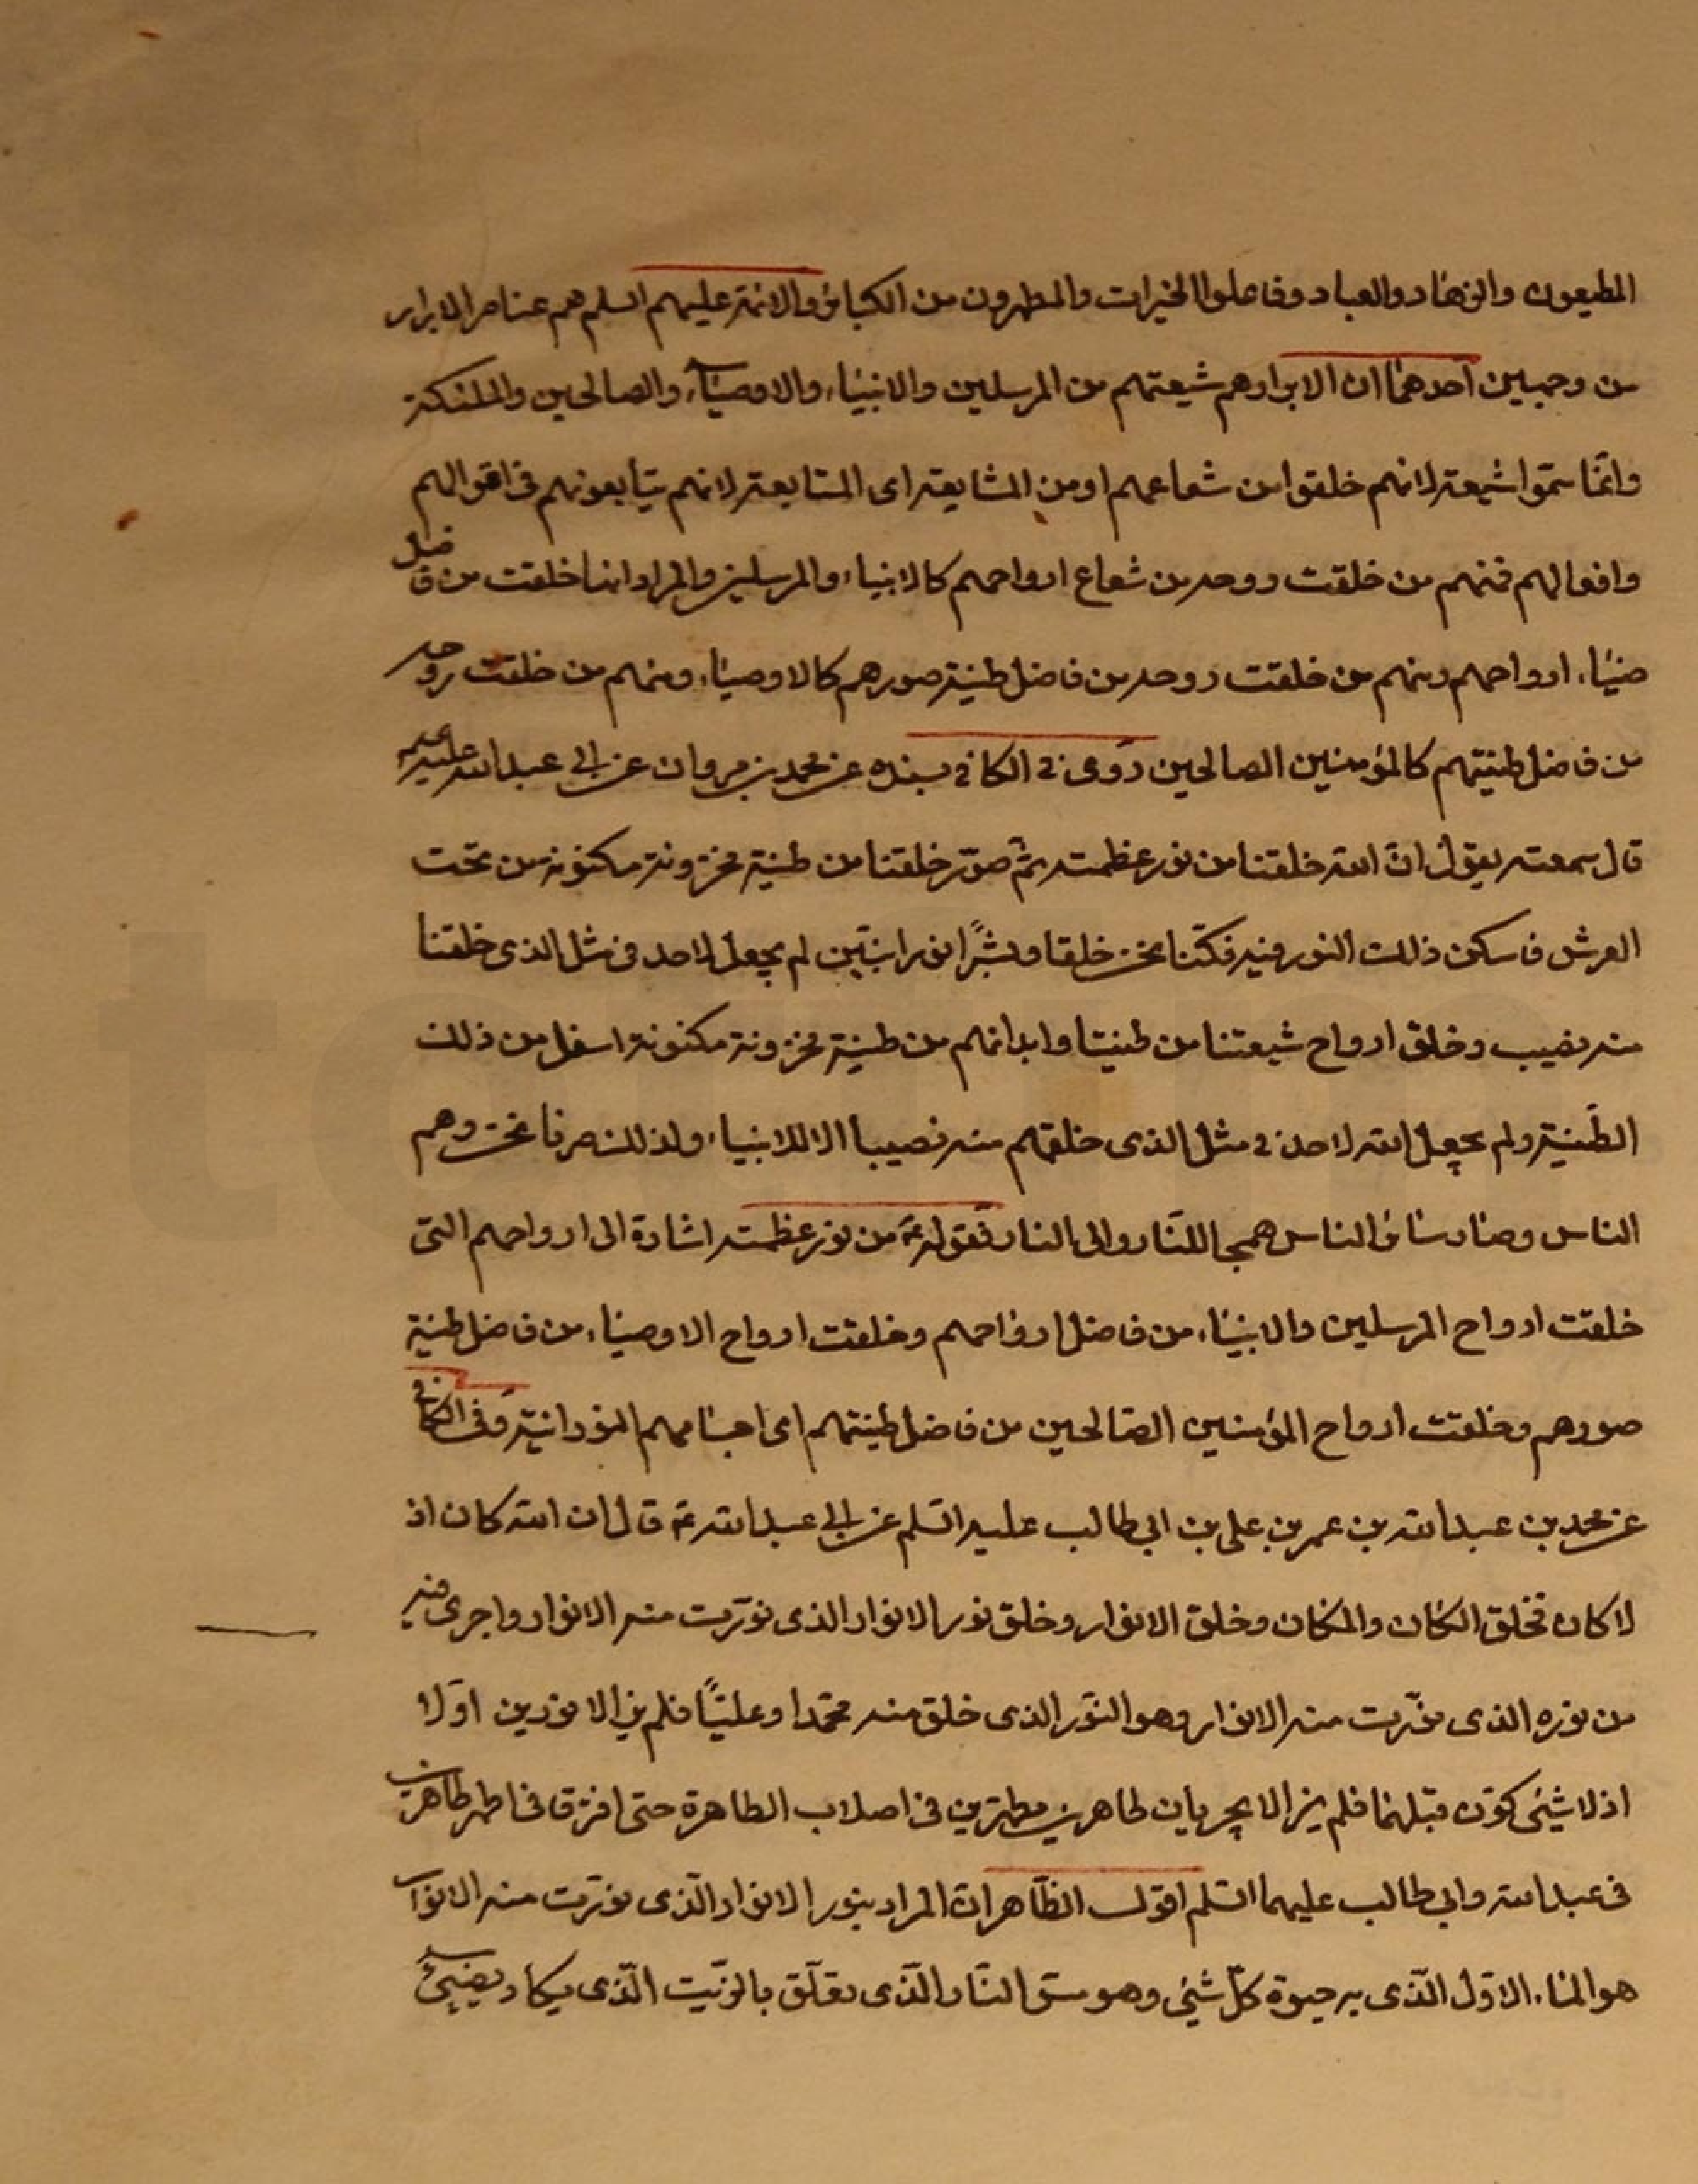 المطيعون والزهاد والعباد وفاعلوا الخيرات والمطهرون من الكبائر والائمة عليهم السلم هم عناصر الابرار
من وجهين احدهما ان الابرار هم شيعتهم من المرسلين والانبياء والاوصياء والصالحين والملئكة
وانما سموا شيعة لانهم خلقوا من شعاعهم او من المشايعة اى المتابعة لانهم يتابعونهم فى اقوالهم
وافعالهم فمنهم من خلقت روحه من شعاع ارواحهم كالانبياء والمرسلين والمراد انها خلقت من فاضل
ضياء ارواحهم ومنهم من خلقت روحه من فاضل طينة صورهم كالاوصياء ومنهم من خلقت روحه
من فاضل طينتهم كالمؤمنين الصالحين روى فى الكافى بسنده عن محمد بن مروان عن ابى عبدالله عليه السلم
قال سمعته يقول ان الله خلقنا من نور عظمته ثم صور خلقنا من طينة مخزونة مكنونة من تحت
العرش فاسكن ذلك النور فيه فكنا نحن خلقا وبشرًا نورانيين لم يجعل لاحد فى مثل الذى خلقنا
منه نصيب وخلق ارواح شيعتنا من طينتنا وابدانهم من طينة مخزونة مكنونة اسفل من ذلك
الطينة ولم يجعل الله لاحد فى مثل الذى خلقهم منه نصيبا الا للانبياء ولذلك صرنا نحن وهم
الناس وصار سائر الناس همجا للنار والى النار فقوله ع من نور عظمته اشارة الى ارواحهم التى
خلقت ارواح المرسلين والانبياء من فاضل ارواحهم وخلقت ارواح الاوصياء من فاضل طينة
صورهم وخلقت ارواح المؤمنين الصالحين من فاضل طينتهم اى اجسامهم النورانية وفى الكافى
عن محمد بن عبدالله بن عمر بن على بن ابى طالب عليه السلم عن ابى عبدالله ع قال ان الله كان اذ
لا كان فخلق الكان والمكان وخلق الانوار وخلق نور الانوار الذى نورت منه الانوار واجرى فيه
من نوره الذى نورت منه الانوار وهو النور الذى خلق منه محمدا وعليًا فلم يزالا نورين اولا
اذ لا شئ كون قبلهما فلم يزالا يجريان طاهرين مطهرين فى اصلاب الطاهرة حتى افترقا فى اطهر طاهرين
فى عبدالله وابى طالب عليهما السلم اقول الظاهر ان المراد بنور الانوار الذى نورت منه الانوار
هو الماء الاول الذى به حيوة كل شئ وهو مس النار الذى تعلق بالزيت الذى يكاد يضيئ